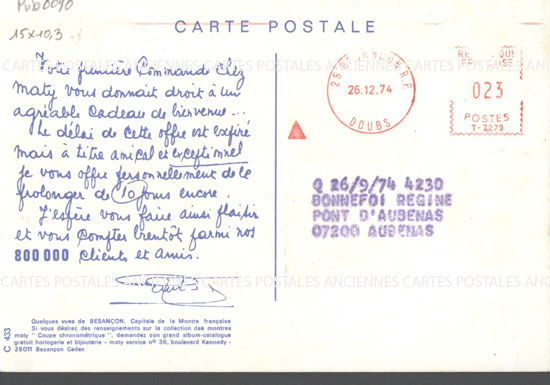 Pub 0090
15x10,3
CARTE POSTALE
Votre première Commande Chez
Maty vous donnait droit à un
agréable Cadeau de bienvenue...
Le délai de Cette offre est expiré
mais à titre amical et exceptionnel
je vous offre personnellement de le
prolonger de 10 jours encore.
J'espère vous faire ainsi plaisir
et vous Compter bientôt parmi nos
800 000 Clients et Amis.
Quelques vues de BESANÇON, Capitale de la Montre française
Si vous désirez des renseignements sur la collection des montres
maty " Coupe chronométrique ", demandez son grand album-catalogue
gratuit horlogerie et bijouterie - maty service n° 36, boulevard Kennedy -
25011 Besançon Cedex
C 433
25 R.P.
26.12.74
DOUBS
023
POSTES
T-3279
Q 26/9/74 4230
BONNEFOI REGINE
PONT D'AUBENAS
07200 AUBENAS
CARTES POSTALES ANCIENNES